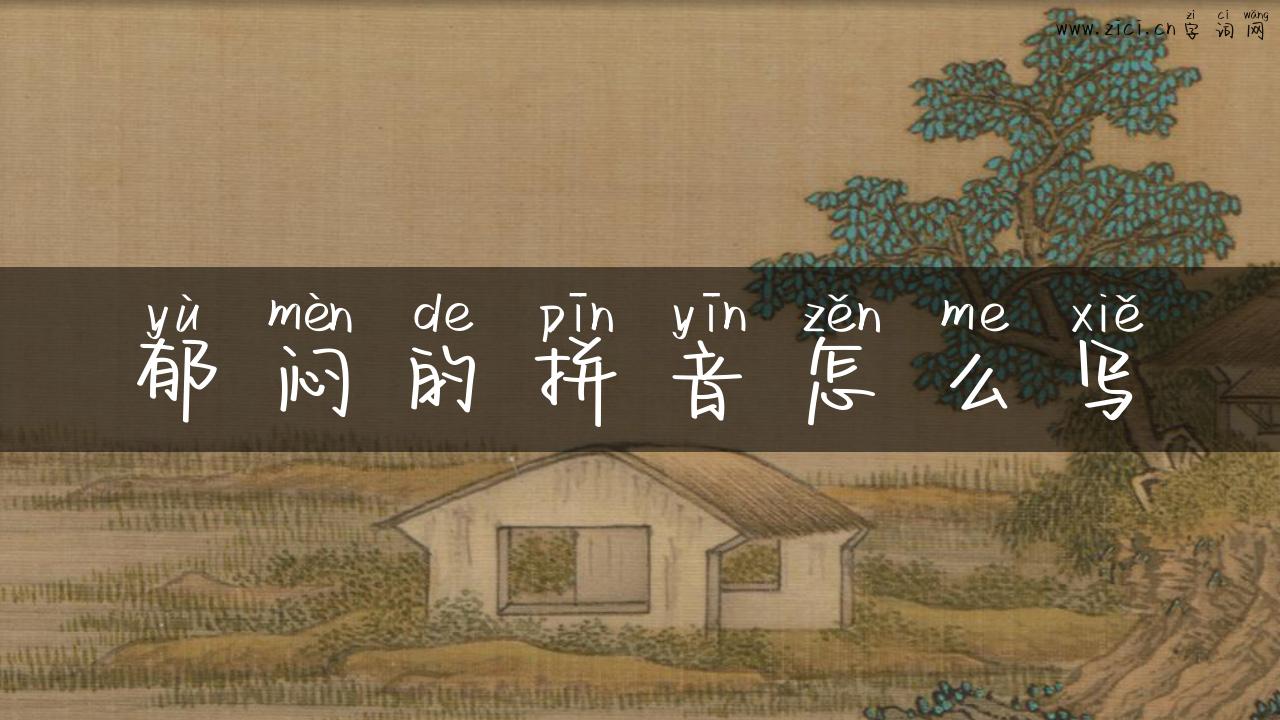 zì cí wǎng
www.zici.cn 字 词 网
yù mèn de pīn yīn zěn me xiě
郁 闷 的 拼 音 怎 么 写